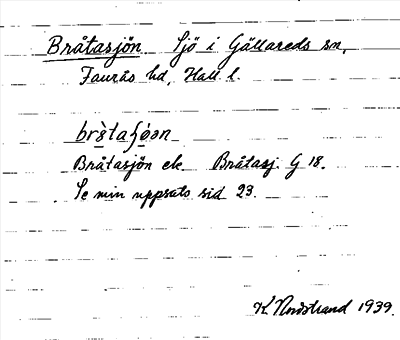 Bråtasjön Sjö i Gällareds sn,
Faurås hd, Hall. l.
Bråtasjön ek. Bråtasj. G 18.
Se min uppsats sid 23.
K Nordstrand 1939.